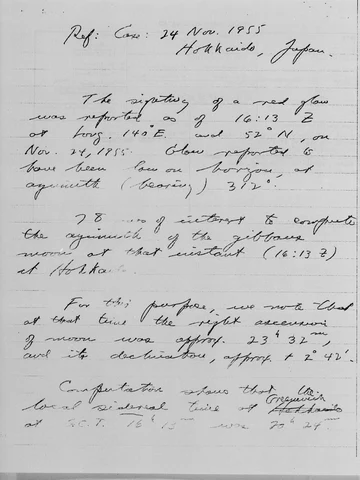 Ref: Case: 24 Nov. 1955
Hokkaido, Japan.
The sighting of a red glow
was reported as of 16:13 Z
at Long. 140°E. and 52°N, on
Nov. 24, 1955. Glow reported to
have been low on horizon, at
azimuth (bearing) 312°.
of interest to compute
the azimuth of the gibbous
moon at that instant (16:13 Z)
at
For this purpose, we note that
at that time the right ascension
of moon was approx. 23h 32m,
and its declination, approx. + 2° 42'.
Computation shows that the
local sidereal time at Greenwich
at 16h was